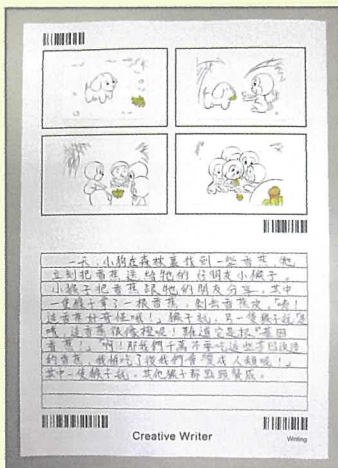 一天,小狗在森林裏找到一些香蕉,牠
立刻把香蕉送給牠的好朋友小猴子。
小猴子把香蕉跟牠的朋友分享。其中
一隻猴子拿了一根香蕉,剝去香蕉皮,「嘩!
這香蕉好奇怪哦!」猴子說。另一隻猴子說:「
哦,這香蕉很像橙呢!難道它是根「基因
香蕉!」「啊!那我們千萬不要吃這些基因改造
的香蕉,我怕吃了後我們會變成人類呢!」
其中一隻猴子說。其他猴子都點頭贊成。
Creative Writer
Writing